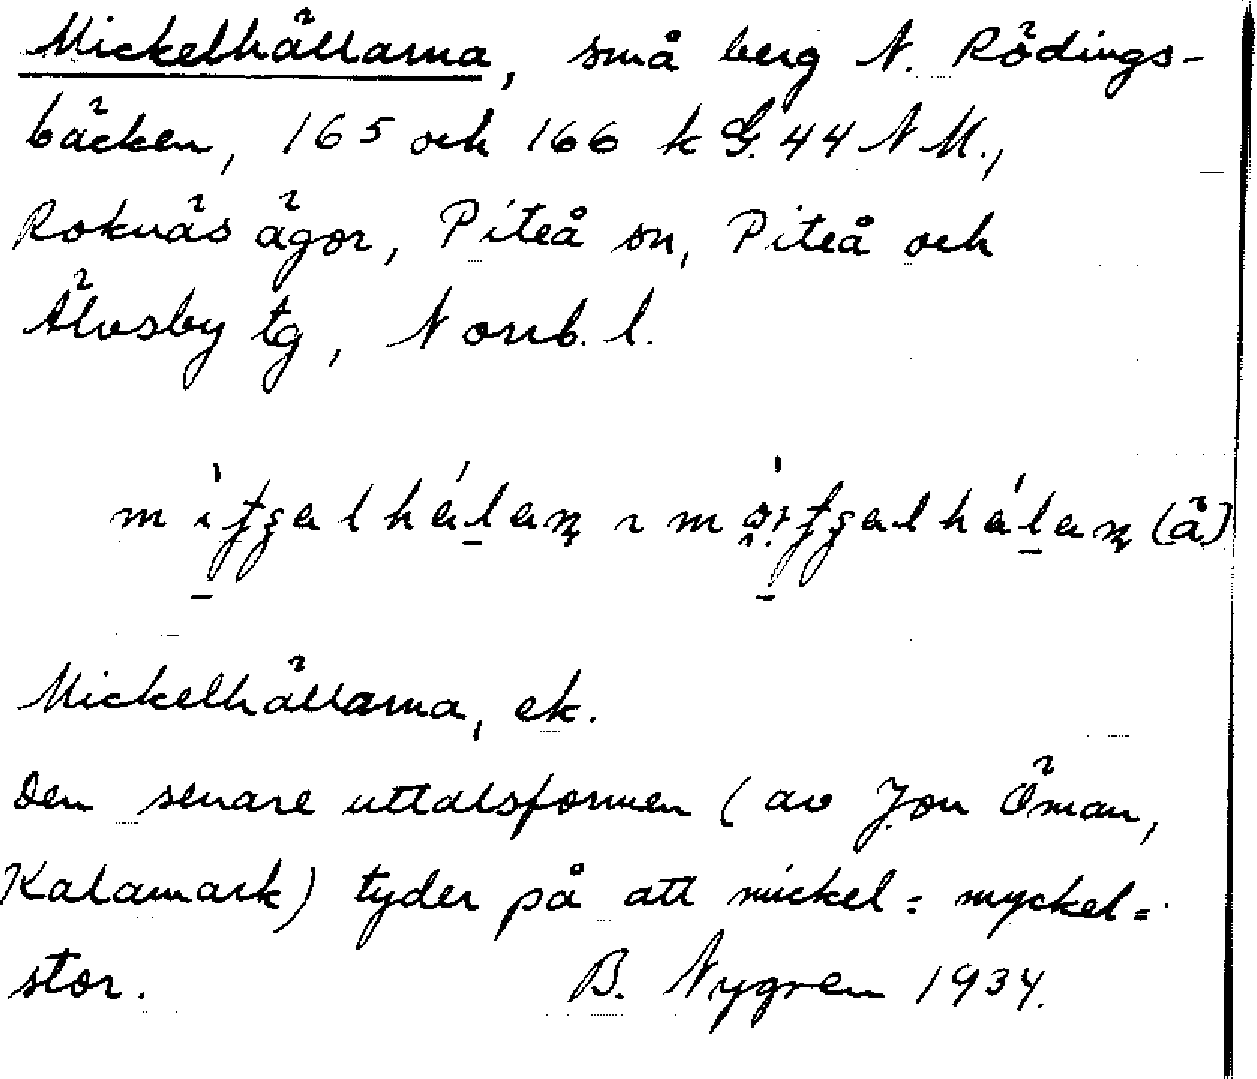 Mickelhällarna, små berg N. Rödings-
bäcken, 165 och 166 k G. 44 N M.,
Roknäs ägor, Piteå sn, Piteå och
Älvsby tg, Norrb. l.
(ä)
Mickelhällarna, ek.
Den senare uttalsformen (av Jon Öman,
Kalamark) tyder på att mickel = myckel =
stor. B. Nygren 1934.